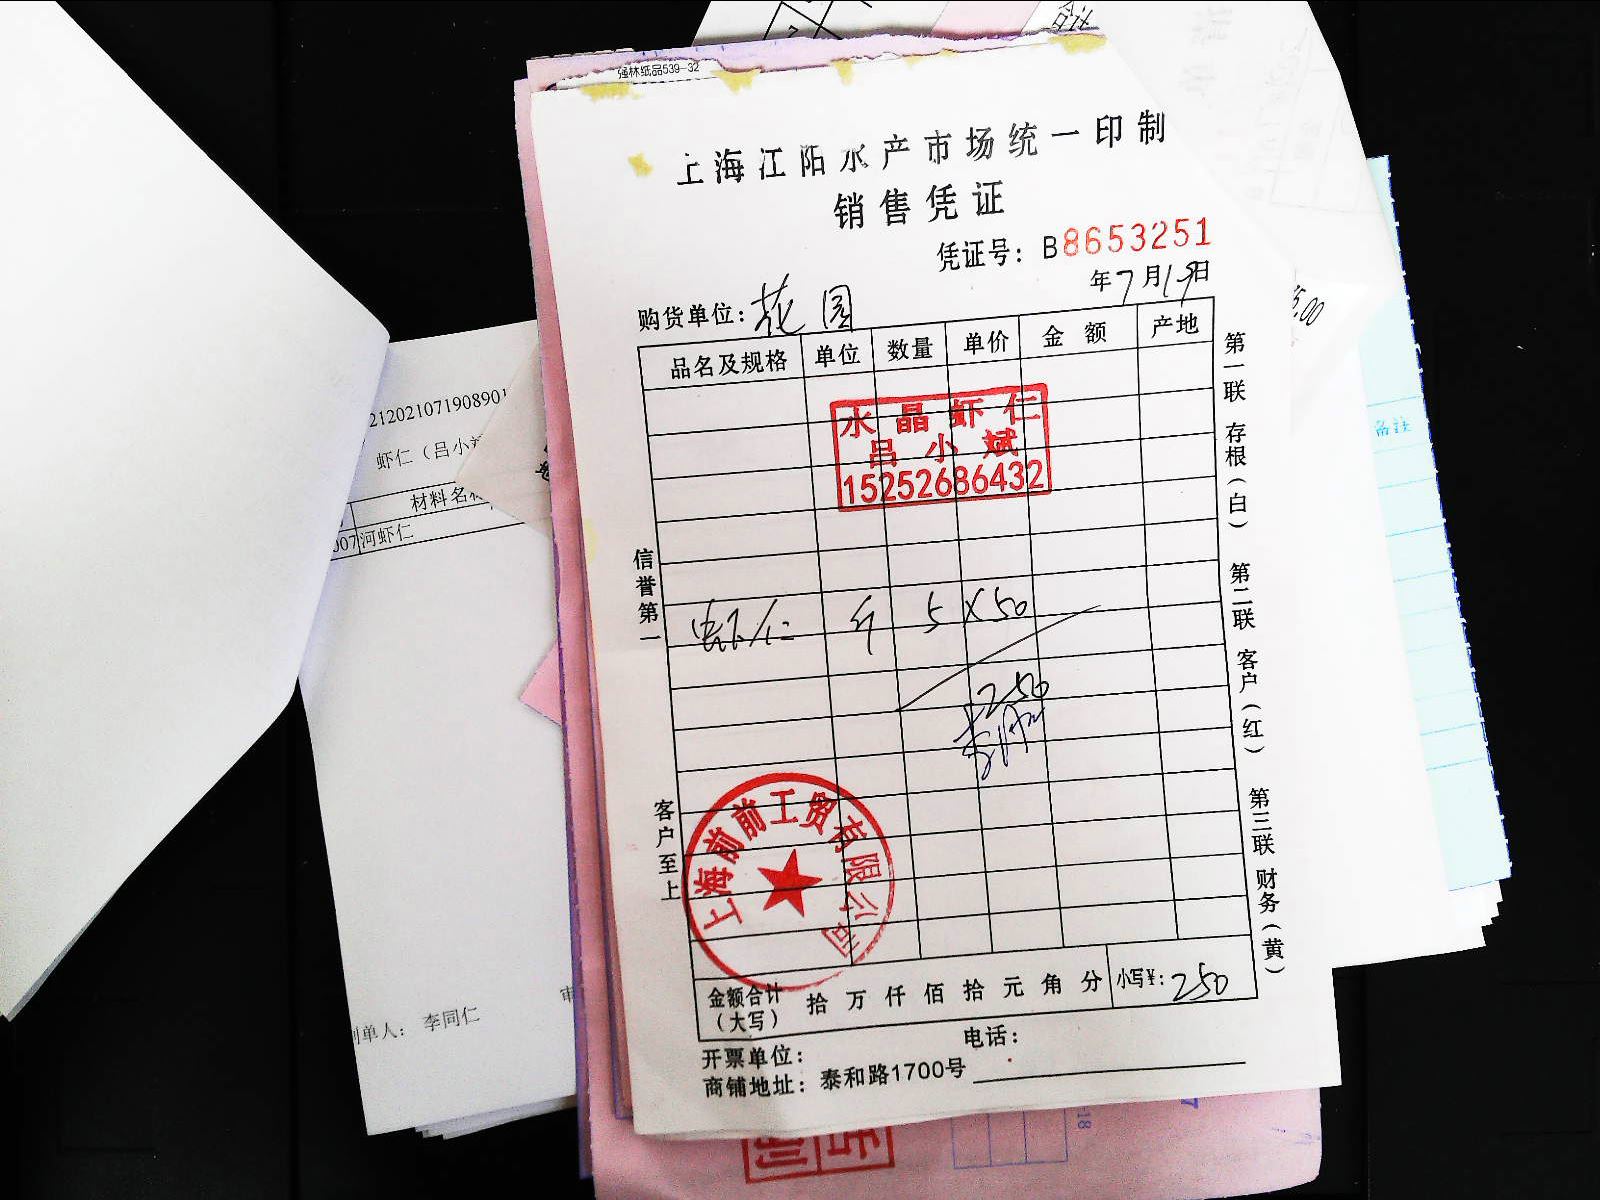 强林纸品539-32
上海江阳水产市场统一印制
销售凭证
凭证号: B8653251
年7月19日
购货单位: 花园
品名及规格 单位 数量 单价 金额 产地
水晶虾仁
吕小斌
15252686432
虾仁 斤 5 X 50
250
上海前前工贸有限公司
金额合计(大写) 拾 万 仟 佰 拾 元 角 分 小写¥: 250
开票单位: 电话:
商铺地址: 泰和路1700号
信誉第一 客户至上
第一联 存根(白) 第二联 客户(红) 第三联 财务(黄)
212021071908901
虾仁(吕小
材料名称
007 河虾仁
制单人: 李同仁
审
备注
5.00
18